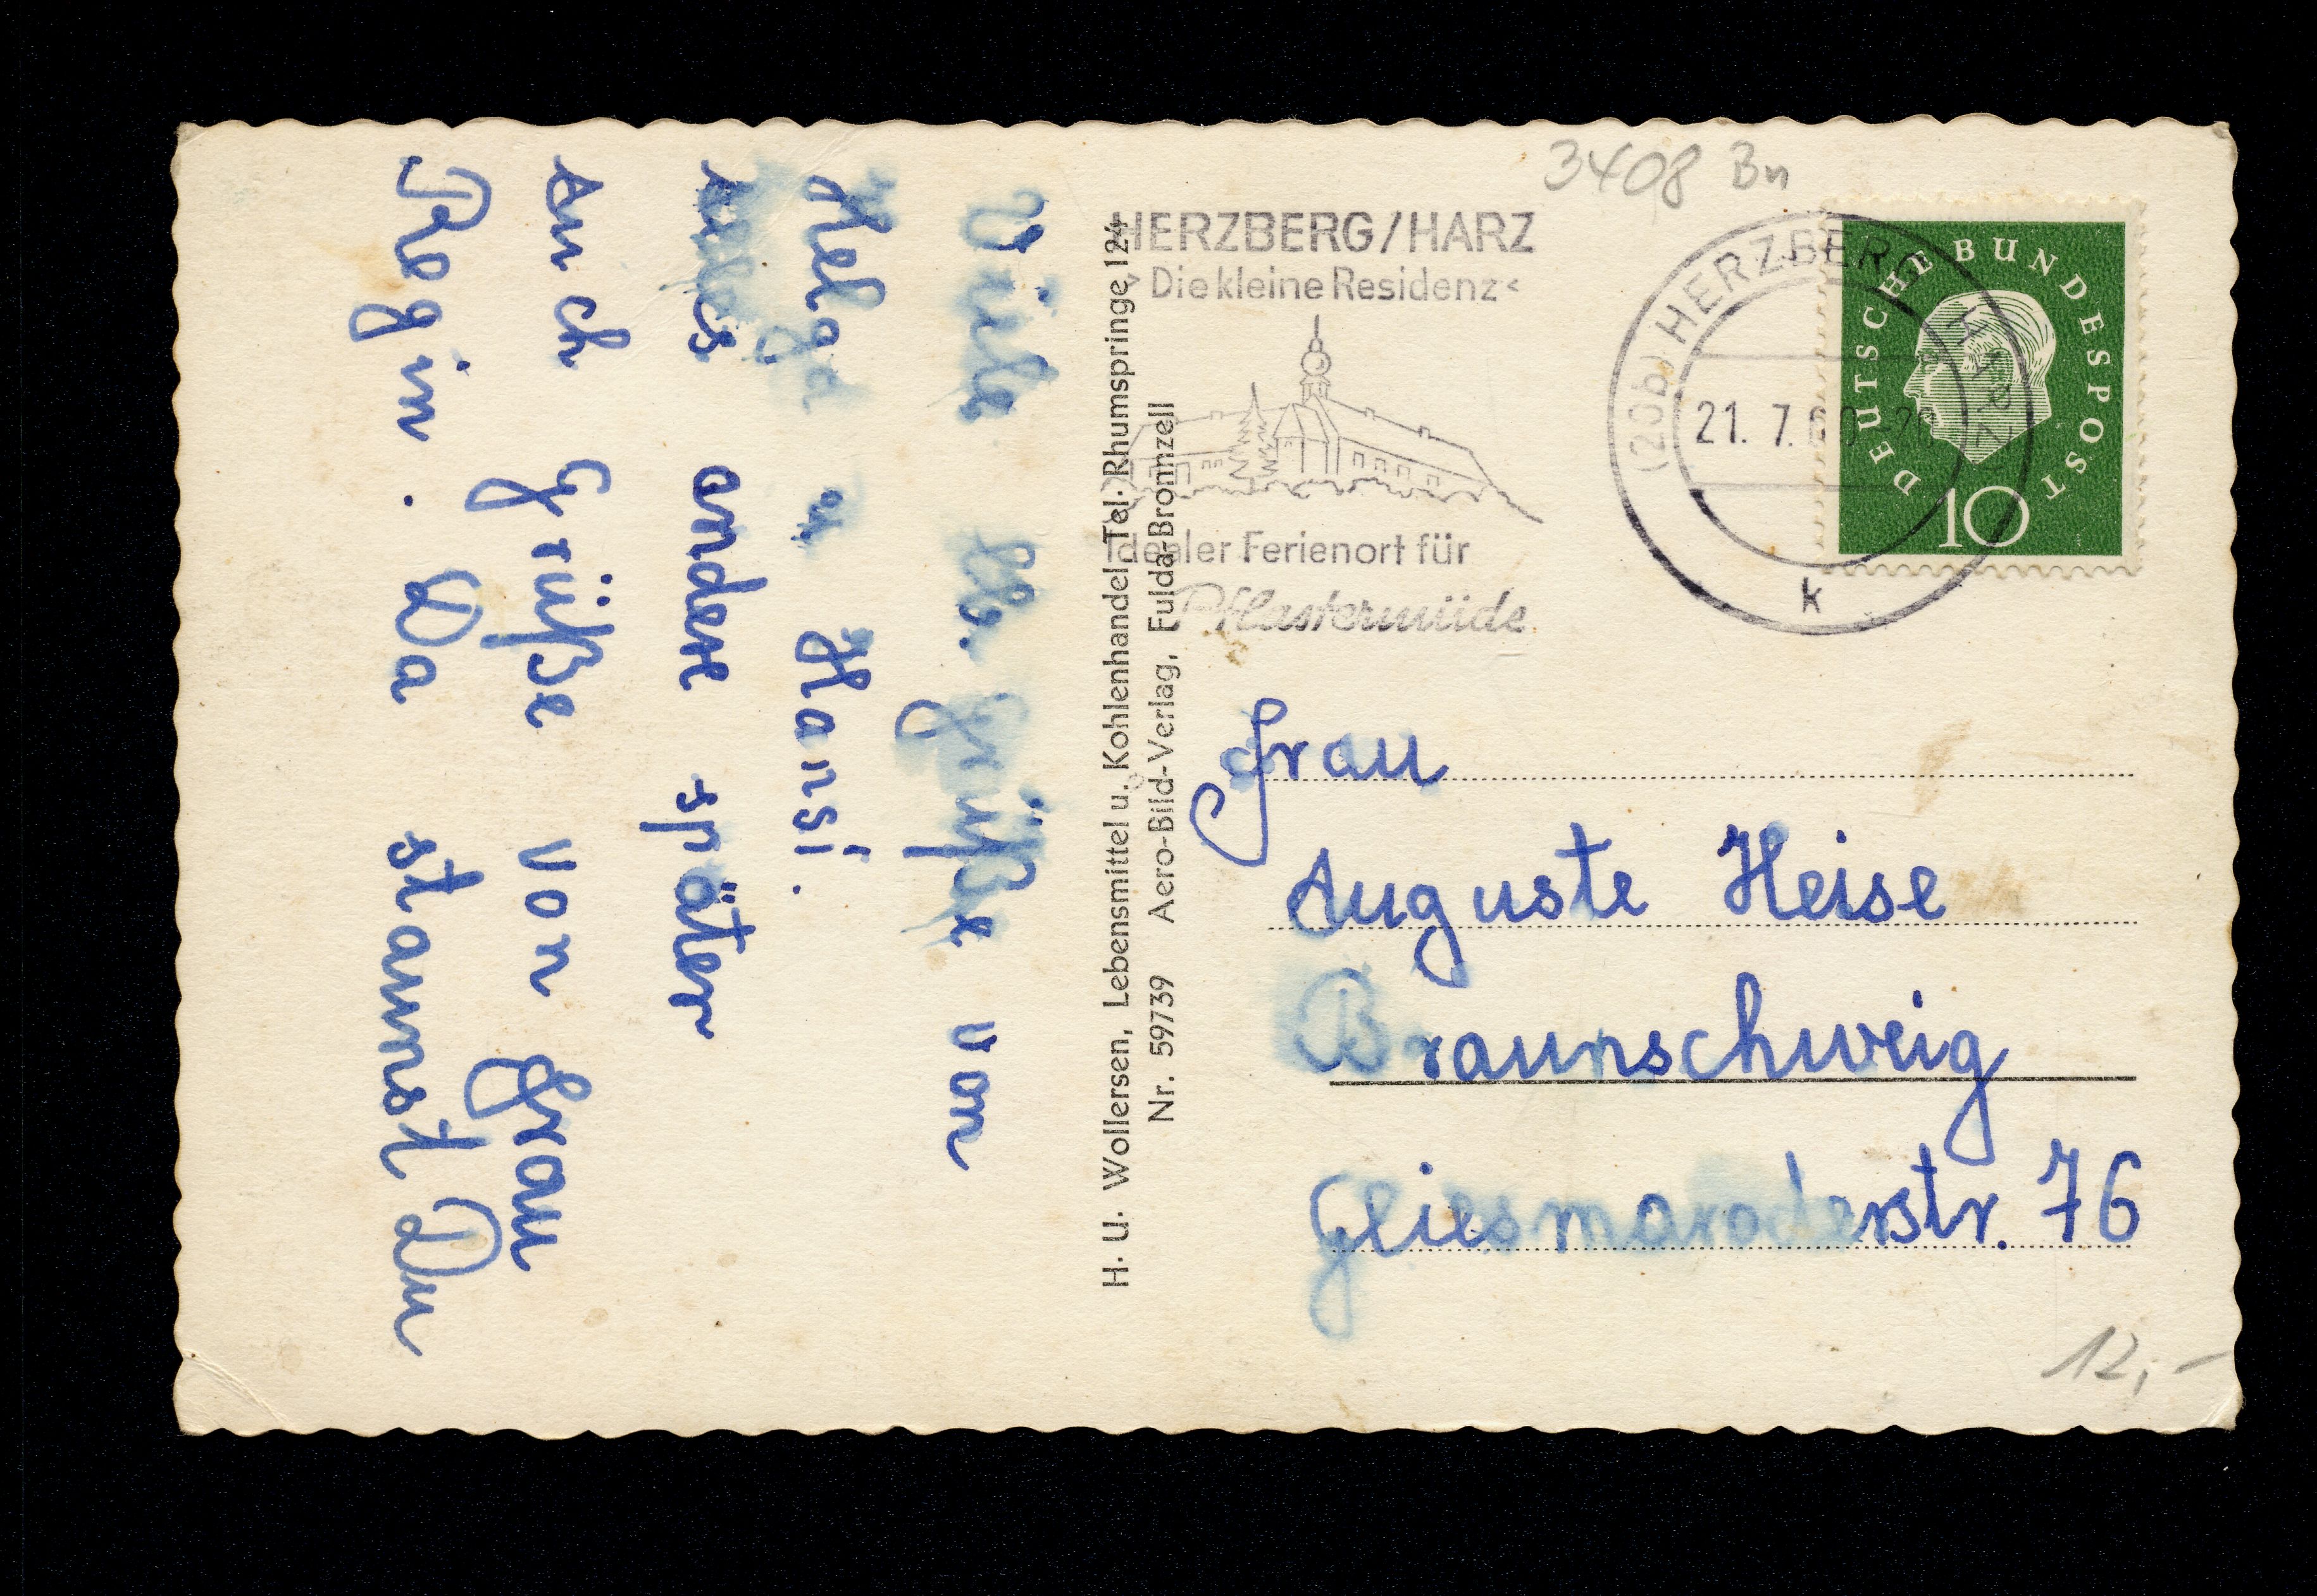 Viele lb. Grüße von
Helga u. Hansi.
alles andere später
auch Grüße von Frau
Regin. Da stamst Du
H. U. Wollersen, Lebensmittel u. Kohlenhandel Tel. Rhumspringe 124
Nr. 59739 Aero-Bild-Verlag, Fulda-Bronnzell
3408 Bn
HERZBERG/HARZ
>Die kleine Residenz<
Idealer Ferienort für
Pflastermüde
(20b) HERZBERG HARZ
21. 7. 60 - 20
k
DEUTSCHE BUNDESPOST
10
Frau
Auguste Heise
Braunschweig
Gliesmaroderstr. 76
12,-